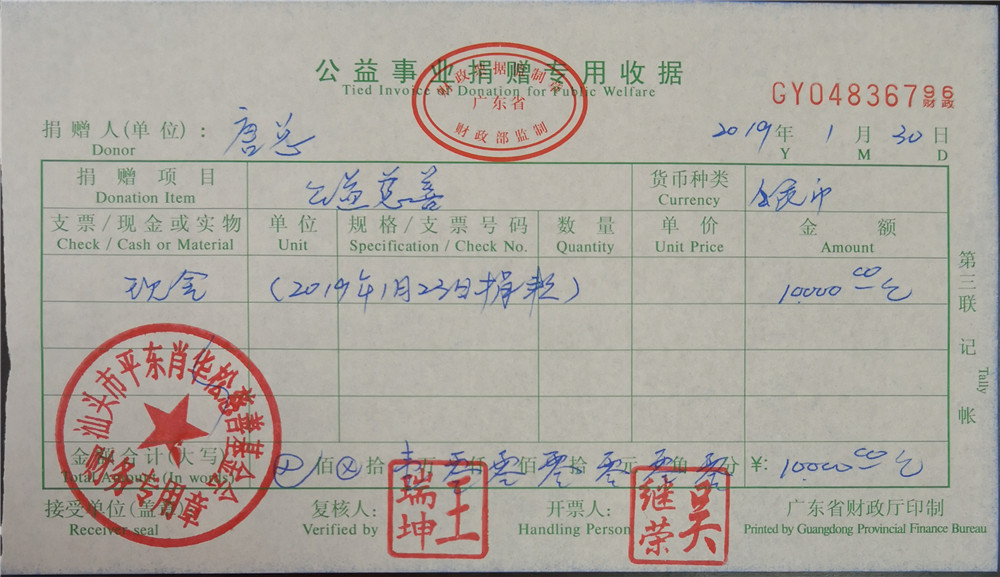 公益事业捐赠专用收据
Tied Invoice of Donation for Public Welfare
财政票据监制章
广东省
财政部监制
GY04836796
财政
捐赠人(单位): 唐总
Donor
2019年 1月 30日
Y M D
捐赠项目 公益慈善 货币种类 人民币
Donation Item Currency
支票/现金或实物 单位 规格/支票号码 数量 单价 金额
Check / Cash or Material Unit Specification / Check No. Quantity Unit Price Amount
现金 (2019年1月23日捐款) 10000.00元
第三联 记帐
Tally
汕头市平东肖华松慈善基金会
财务专用章
金额合计(大写) 佰 拾 壹万 零仟 零佰 零拾 零元 零角 零分 ¥: 10000.00元
Total Amount (In words)
接受单位(盖章) 复核人: 王瑞坤 开票人: 吴继荣 广东省财政厅印制
Receiver seal Verified by Handling Person Printed by Guangdong Provincial Finance Bureau